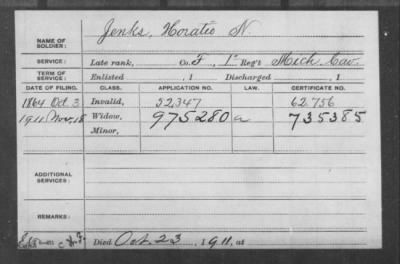 NAME OF SOLDIER: Jenks, Horatio N.
SERVICE: Late rank, Co. F, 1" Reg't Mich. Cav.
TERM OF SERVICE: Enlisted , 1 Discharged , 1
DATE OF FILING. CLASS. APPLICATION NO. LAW. CERTIFICATE NO.
1864 Oct. 3 Invalid, 52,347 62.756
1911 Nov. 18 Widow, 975280 a 735385
Minor,
ADDITIONAL SERVICES:
REMARKS:
Died Oct. 23, 1911, at